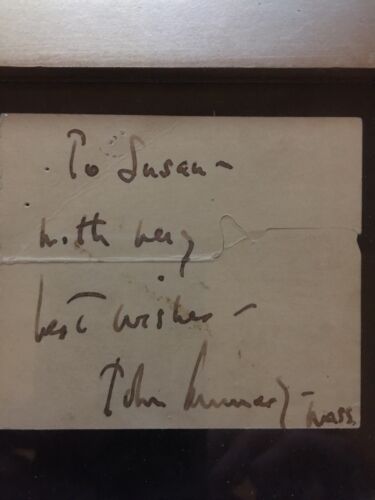 To Susan –
with very
best wishes –
John Kennedy – Mass.